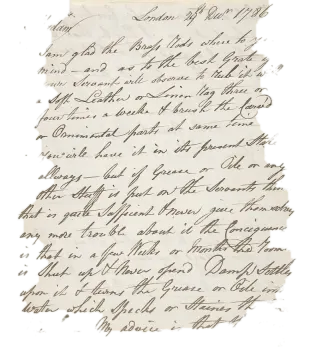 London 29th Decr. 1786
Sam
I am glad the Brass Rods where to y
mind – and as to the best Grate
Servant will observe to Rub it w
a Soft Leather or Linen Rag three or
four times a weeke & brush the Carved
or Ornimental parts at same time
You will have it in its present State
always – but if Grease or Oile or any
other Stuff is put on the Servants think
that is quite Sufficent & never give themselves
any more trouble about it the Conciquence
is that in a few Weeks or Months the Room
is Shut up & Never opend Damp Settles
upon it & turns the Grease or Oile into
Water which Specks or Staines th
My advice is that